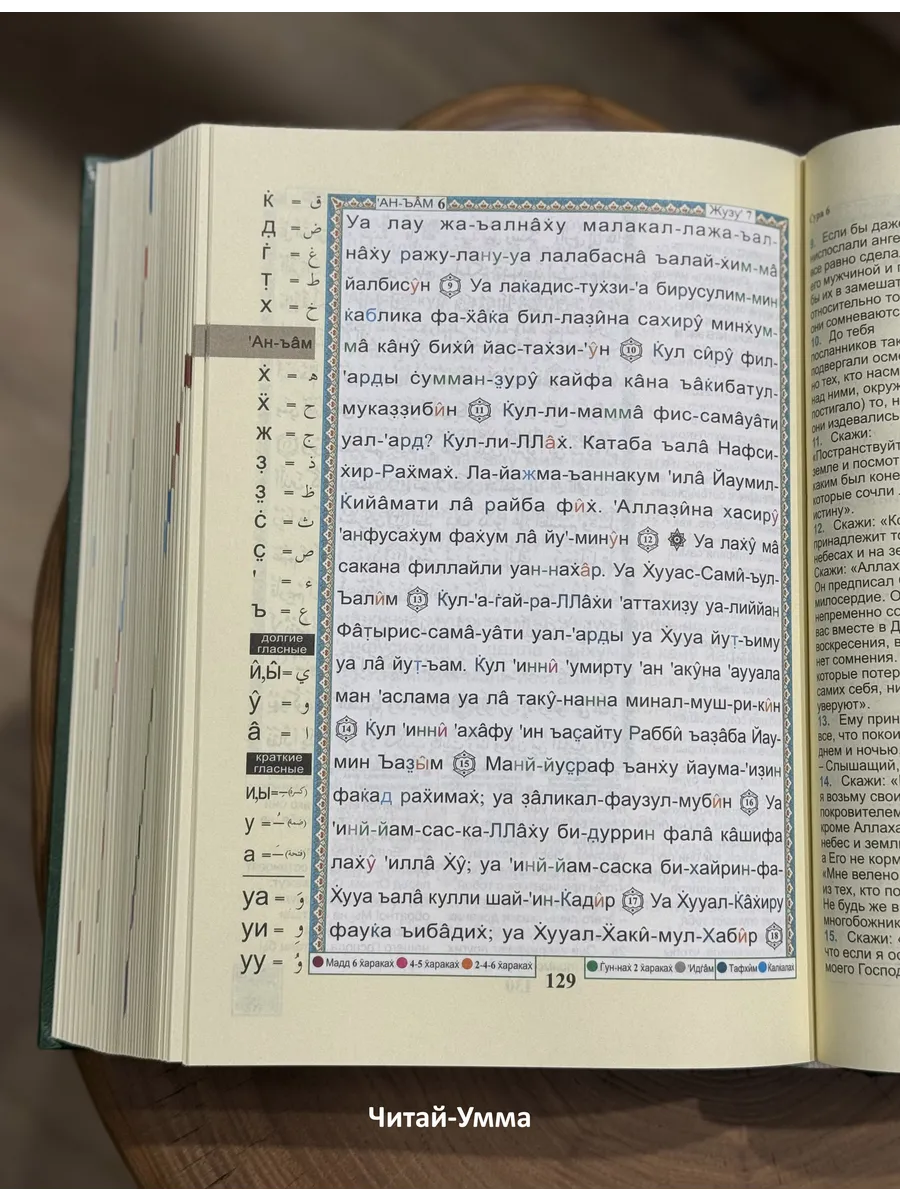 'АН-ЪÂМ 6
Жузу' 7
Уа лау жа-ъалнâẋу малакал-лажа-ъал-
нâẋу ражу-лану-уа лалабаснâ ъалай-ẋим-мâ
йалбисŷн 9 Уа лаќадис-туẋзи-'а бирусулим-мин
ќаблика фа-ẍâќа бил-лаẓйна сахирŷ минẋум-
мâ кâнŷ биẋи̂ йас-таẋзи-'ŷн 10 Ќул си̂рŷ фил-
'арды ċумман-ẓурŷ кайфа кâна ъâќибатул-
муказзиби̂н 11 Ќул-ли-маммâ фис-самâуâти
уал-'ард? Ќул-ли-ЛЛâẋ. Катаба ъалâ Нафси-
ẋир-Раẍмаẋ. Ла-йажма-ъаннакум 'илâ Йаумил-
Ќийâмати лâ райба фи̂ẋ. 'Аллаẓи̂на хасирŷ
'анфусаẋум фаẋум лâ йу'-минŷн 12 Уа лаẋŷ мâ
сакана филлайли уан-наẋâр. Уа Ẋууас-Сами̂-ъул-
Ъали̂м 13 Ќул-'а-ѓай-ра-ЛЛâẋи 'аттахиẓу уа-лиййан
Фâṭырис-самâ-уâти уал-'арды уа Ẋууа йуṭ-ъиму
уа лâ йуṭ-ъам. Ќул 'инни̂ 'умирту 'ан 'акŷна 'ауuала
ман 'аслама уа лâ такŷ-нанна минал-муш-ри-ки̂н
14 Ќул 'инни̂ 'ахâфу 'ин ъаҫайту Рабби̂ ъаẓâба Йау-
мин Ъаẓы̂м 15 Манй-йуҫраф ъанẋу йаума-'изин
фаќад раẍимаẋ; уа ẓâликал-фаузул-муби̂н 16 Уа
'инй-йам-сас-ка-ЛЛâẋу би-дуррин фалâ кâшифа
лаẋŷ 'иллâ Ẋŷ; уа 'инй-йам-саска би-хайрин-фа-
Ẋууа ъалâ кулли шай-'ин-Ќади̂р 17 Уа Ẋууал-Ќâẋиру
фауќа ъибâдиẋ; уа Ẋууал-Ẍаки̂-мул-Хаби̂р 18
Мадд 6 ẍаракаẋ 4-5 ẍаракаẋ 2-4-6 ẍаракаẋ
Ѓун-наẋ 2 ẍаракаẋ 'Идѓâм Тафхи̂м Ќалќалаẋ
129
ќ = ق
Д = ض
ѓ = غ
Ṭ = ط
Х = خ
'Ан-ъâм
Ẋ = ه
Ẍ = ح
Ж = ج
Ẓ = ذ
= ظ
Ċ = ث
Ҫ = ص
' = ء
Ъ = ع
долгие
гласные
И̂,Ы̂ = ي
Ŷ = و
â = ا
краткие
гласные
и,ы = (كسرة)
у = (ضمة)
а = (فتحة)
уа = وَ
уи = وِ
уу = وُ
Сура 6
9. Если бы даже
ниспослали анге
все равно сдела
его мужчиной и
бы их в замешат
относительно то
они сомневаются
10. До тебя
посланников так
подвергали осме
но тех, кто насм
над ними, окруж
постигало) то, н
они издевались
11. Скажи:
«Постранствуйт
земле и посмот
каким был коне
которые сочли
истину».
12. Скажи: «Ко
принадлежит то
небесах и на зе
Скажи: «Аллах
Он предписал
милосердие. О
непременно со
вас вместе в Д
воскресения, в
нет сомнения.
которые потер
самих себя, ни
уверуют».
13. Ему прин
все, что покои
днем и ночью.
– Слышащий,
14. Скажи: «
я возьму свои
покровителем
кроме Аллаха
небес и земли
а Его не корм
«Мне велено
из тех, кто по
Не будь же в
многобожник
15. Скажи: «
что если я ос
моего Господ
Читай-Умма